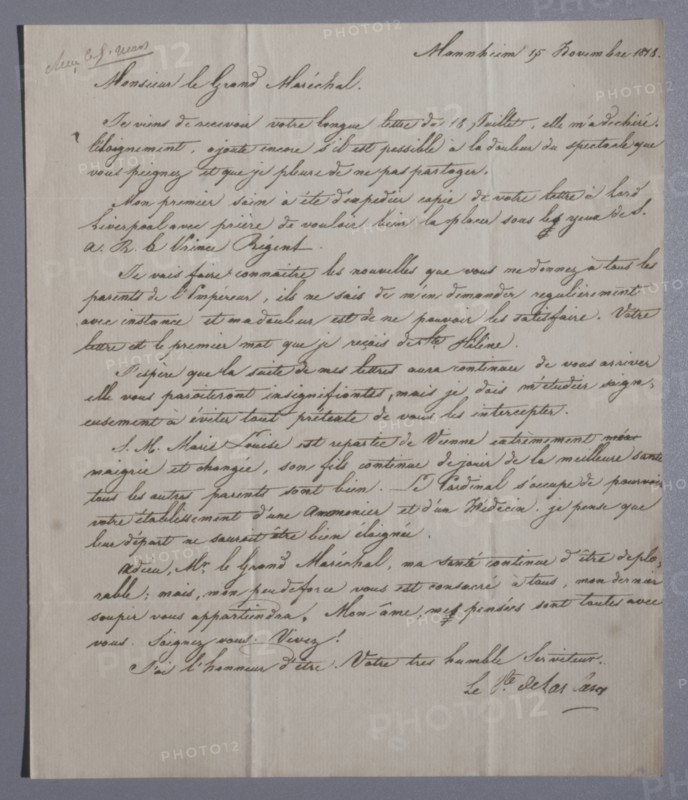 Mannheim 15 Novembre 1818.
Monsieur le Grand Maréchal.
Je viens de recevoir votre longue lettre du 18 Juillet, elle m'a déchiré.
L'éloignement, ajoute encore s'il est possible à la douleur du spectacle que
vous peignez et que je pleure de ne pas partager.
Mon premier soin a été d'expédier copie de votre lettre à Lord
Liverpool avec prière de vouloir bien la placer sous les yeux de S.
A. R. le Prince Régent.
Je vais faire connaître les nouvelles que vous me donnez à tous les
parents de l'Empereur, ils ne sais de m'en demander régulièrement
avec instance et ma douleur est de ne pouvoir les satisfaire. Votre
lettre est le premier mot que je reçois de Ste Hélène.
J'espère que la suite de mes lettres aura continué de vous arriver
elle vous paraîteront insignifiantes, mais je dois m'étudier soign-
eusement à éviter tout prétexte de vous les intercepter.
S. M. Marie Louise est repartie de Vienne extrêmement
maigrie et changée, son fils continue de jouir de la meilleure santé
tous les autres parents sont bien. Le Cardinal s'occupe de pourvoir
votre établissement d'une Aumonier et d'un Médecin. je pense que
leur départ ne saurait être bien éloigné.
Adieu, Mr. le Grand Maréchal, ma santé continue d'être déplo-
rable; mais, mon peu de force vous est consacré à tous, mon dernier
soupir vous appartiendra. Mon âme, mes pensées sont toutes avec
vous. Soignez vous. Vivez!
J'ai l'honneur d'être Votre très humble Serviteur.
Le Cte de Las Cases
PHOTO12